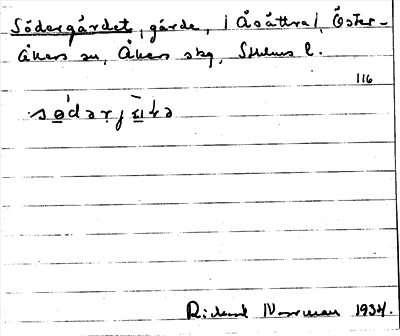 Södergärdet, gärde, / Åsättra /, Öster-
åkers sn, Åkers skg, Sthlms l.
116
Rickard Norrman 1934.